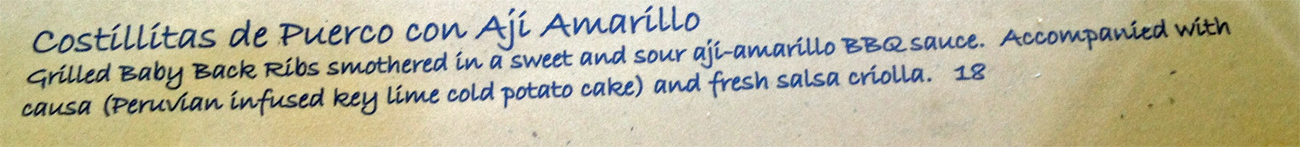 Costillitas de Puerco con Ají Amarillo
Grilled Baby Back Ribs smothered in a sweet and sour ají-amarillo BBQ sauce. Accompanied with
causa (Peruvian infused key lime cold potato cake) and fresh salsa criolla. 18